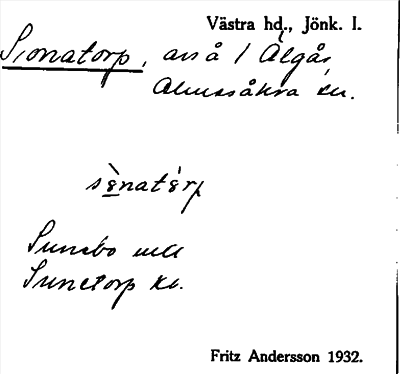 Västra hd., Jönk. l.
Sonatorp, avs å / Älgås,
Almesåkra sn.
sènatérp
Sunebo
Sunetorp
Fritz Andersson 1932.